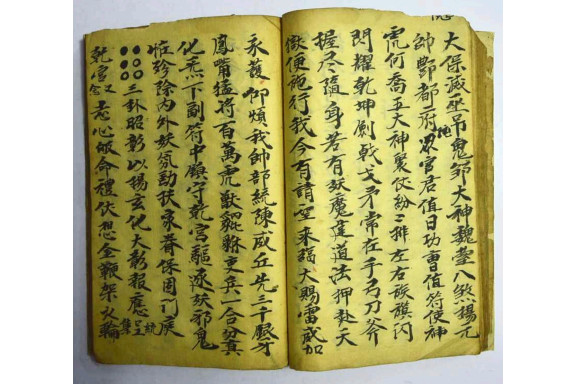 大保滅巫吊鬼節大神魏八煞楊元
帥酆都地府官君值日功曹值符使神
何喬五大神仗紛排左右旌旗闪
閃耀乾坤劍戟戈矛常在手弓刀斧
握尽隨身若有妖魔違道法押赴天
便施行我今有請望來臨大賜雷威加
永護仰煩我帥部統陳威丘先三千銀牙
鳳嘴猛将百萬虎獸貔貅交兵一合分真
化炁下副符中鎮守乾宮驅逐妖邪鬼
怪殄除內外妖氛扶家眷保固门庭
三卦昭彰以揚玄化大彰報應
乾宮志心皈命禮伏想金鞭架火輪